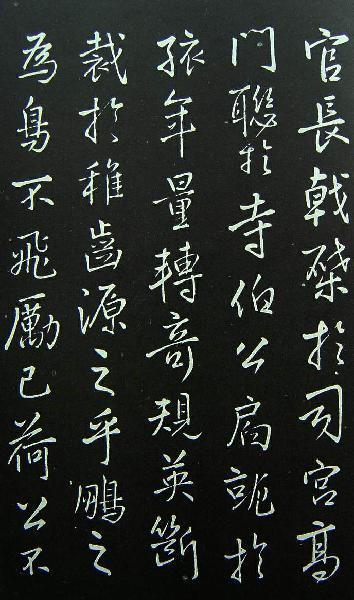 官長戟棨於司宮高
門聯於寺伯公扃詭於
孩年量轉奇規英斷
裁於稚齒源之乎鵬之
為鳥不飛勵已荷公不